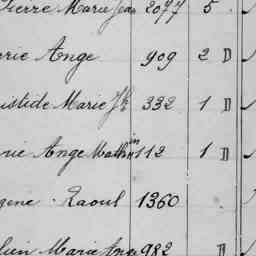 Pierre Marie Jean 2077 5
rie Ange 909 2 D
istide Marie Jh 332 1 D
rie Ange Mathin 112 1 D
gene Raoul 1360
lien Marie Ange 982 D